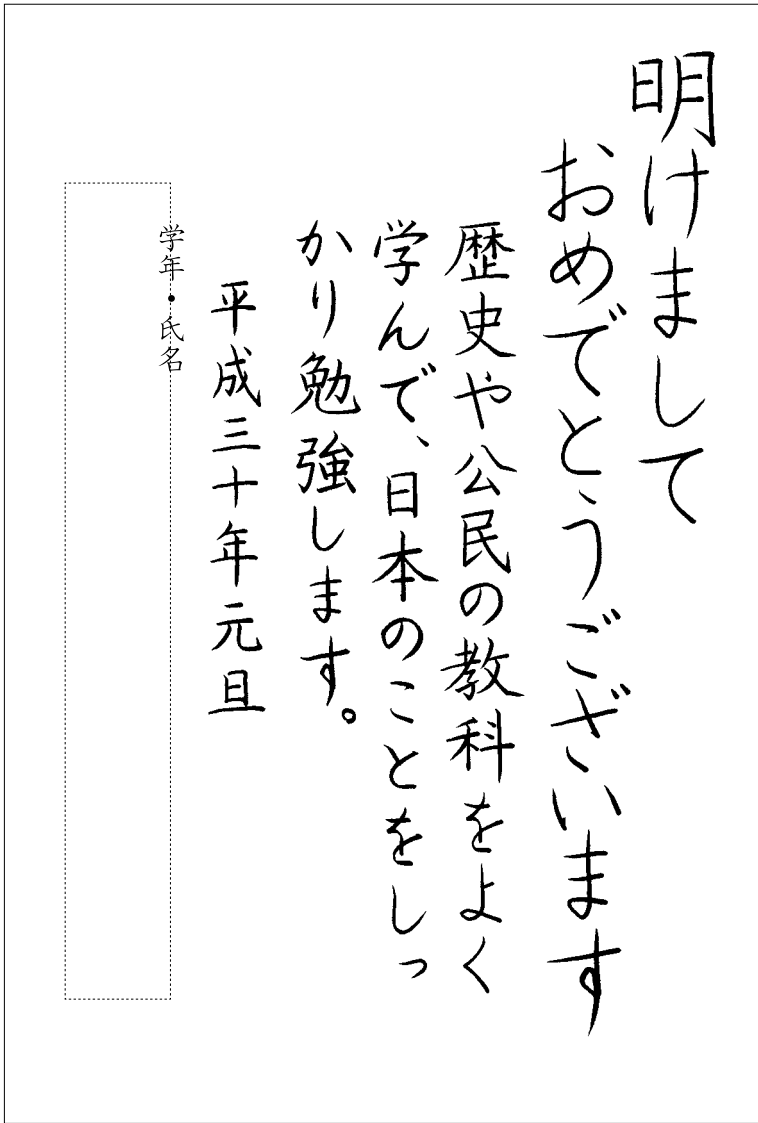 明けまして
おめでとうございます
歴史や公民の教科をよく
学んで、日本のことをしっ
かり勉強します。
平成三十年元旦
学年・氏名